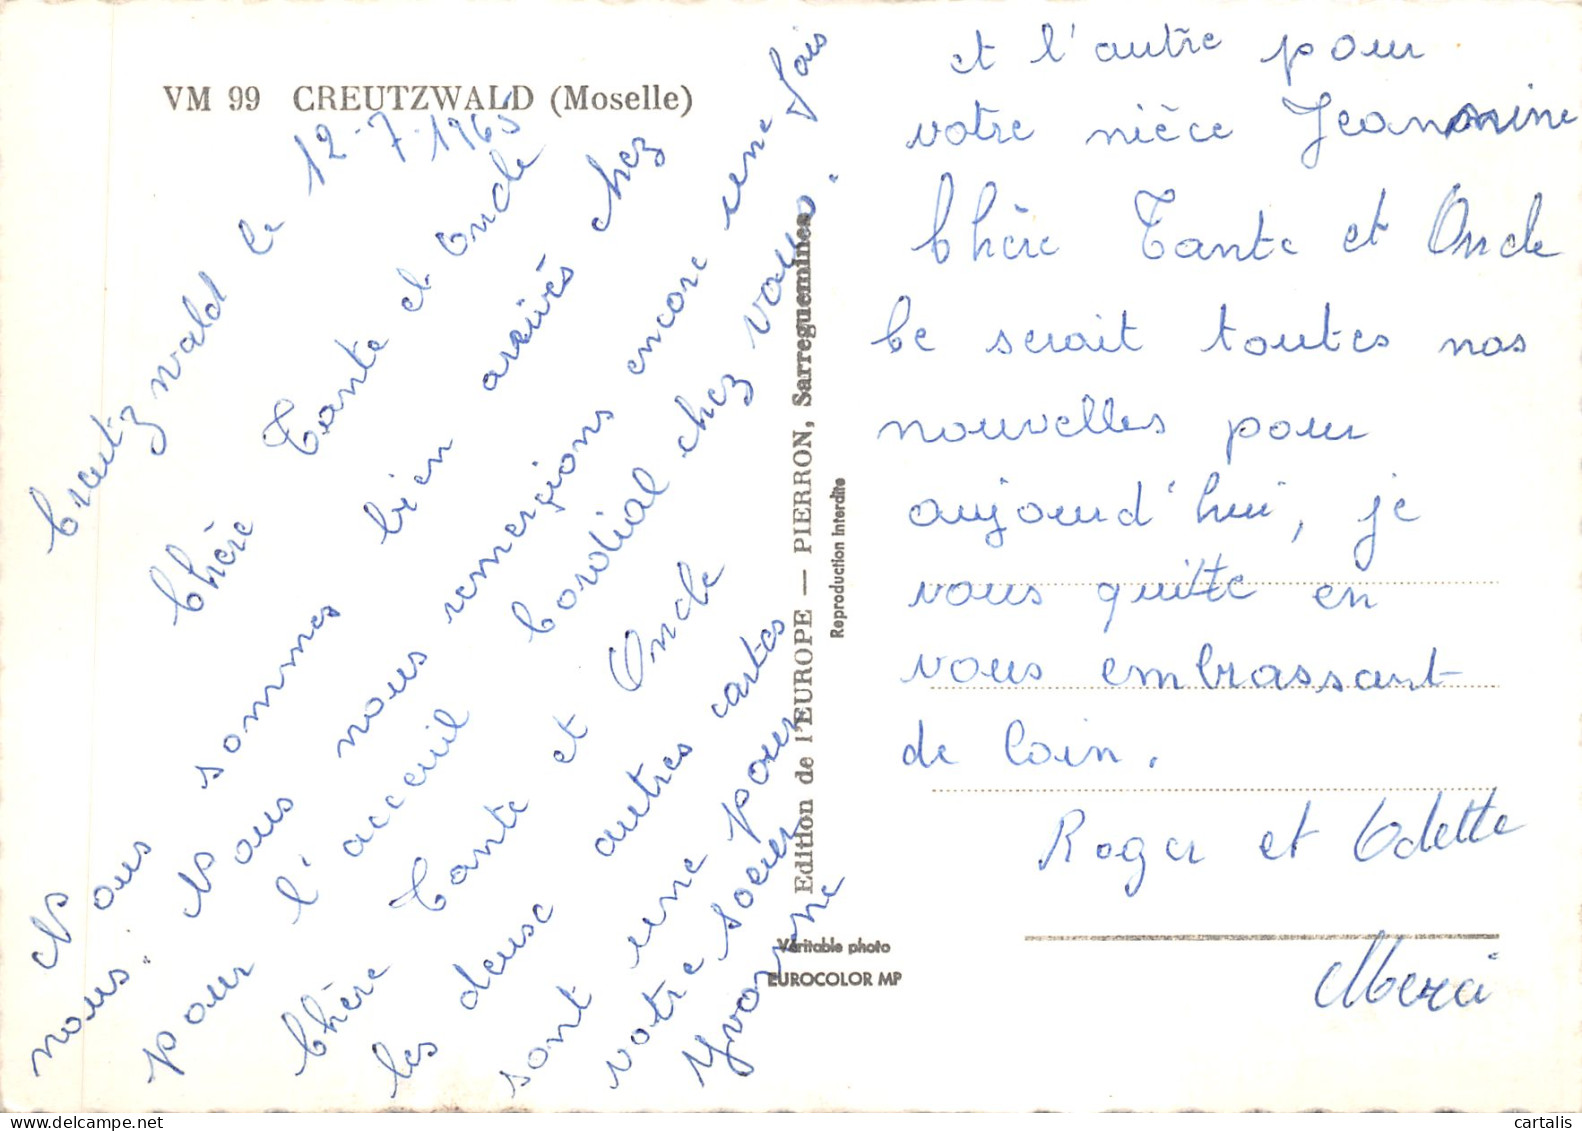 VM 99 CREUTZWALD (Moselle)
Creutzwald le 12-7-1965
Chère Tante et Oncle
Nous sommes bien arrivés chez
nous. Nous nous remerçions encore une fois
pour l'acceuil Cordial chez vous.
Chère Tante et Oncle
les deux autres cartes
sont une pour
votre soeur
Yvonne
et l'autre pour
votre nièce Jeannine
Chère Tante et Oncle
Ce serait toutes nos
nouvelles pour
aujourd'hui, je
vous quitte en
vous embrassant
de loin.
Roger et Odette
Merci
Edition de l'EUROPE — PIERRON, Sarreguemines
Reproduction Interdite
Véritable photo
EUROCOLOR MP
cartalis